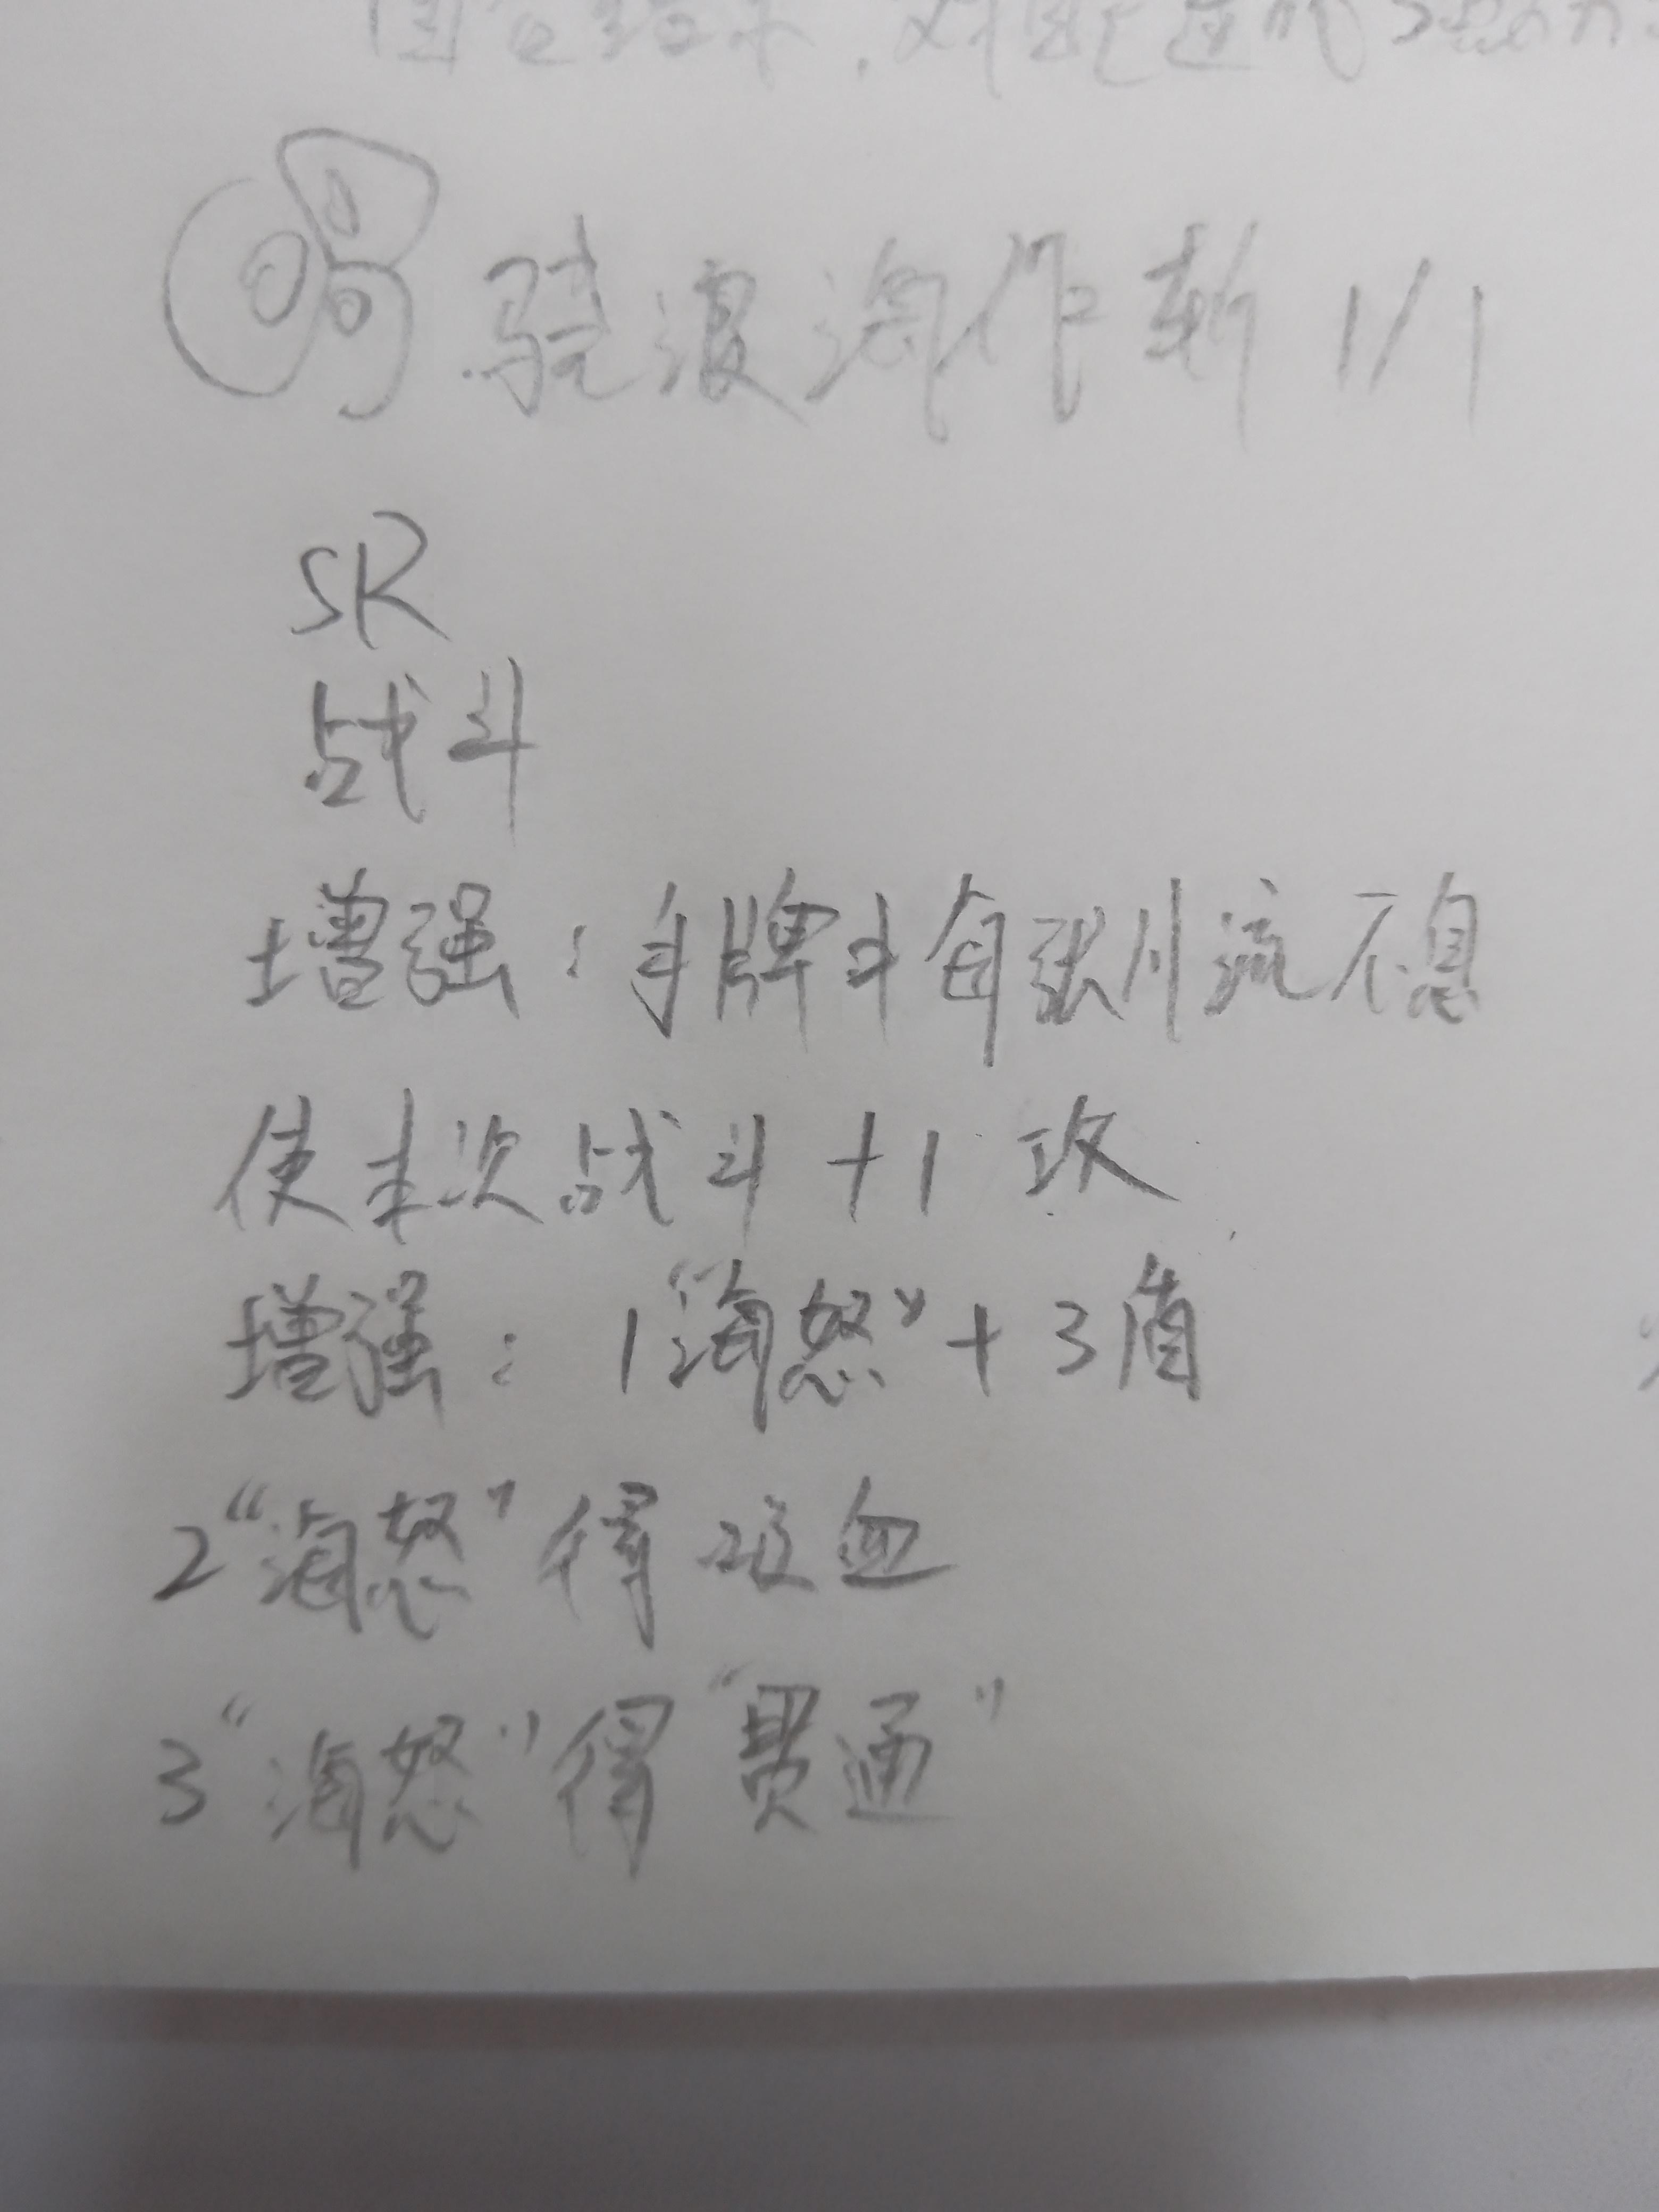 骇浪海作斩 1/1
SR
战斗
增强：手牌中每张川流不息
使本次战斗+1攻
增强：1“海怒”+3盾
2“海怒”得吸血
3“海怒”得“贯通”